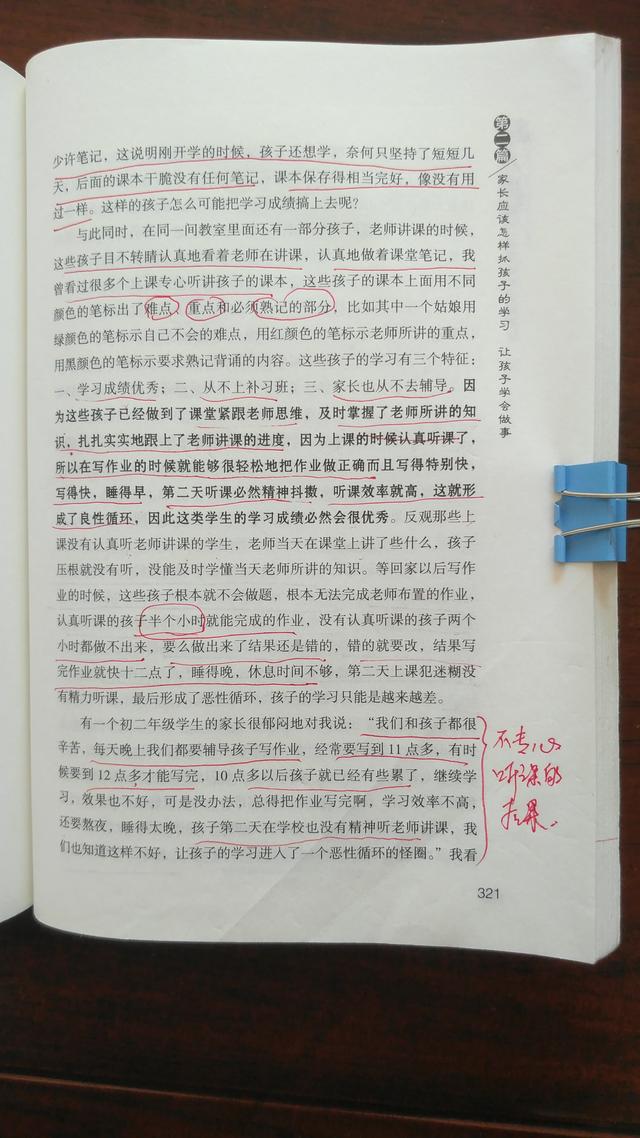 少许笔记，这说明刚开学的时候，孩子还想学，奈何只坚持了短短几
天，后面的课本干脆没有任何笔记，课本保存得相当完好，像没有用
过一样。这样的孩子怎么可能把学习成绩搞上去呢？
与此同时，在同一间教室里面还有一部分孩子，老师讲课的时候，
这些孩子目不转睛认真地看着老师在讲课，认真地做着课堂笔记，我
曾看过很多个上课专心听讲孩子的课本，这些孩子的课本上面用不同
颜色的笔标出了难点、重点和必须熟记的部分，比如其中一个姑娘用
绿颜色的笔标示自己不会的难点，用红颜色的笔标示老师所讲的重点，
用黑颜色的笔标示要求熟记背诵的内容。这些孩子的学习有三个特征：
一、学习成绩优秀；二、从不上补习班；三、家长也从不去辅导。因
为这些孩子已经做到了课堂紧跟老师思维，及时掌握了老师所讲的知
识，扎扎实实地跟上了老师讲课的进度，因为上课的时候认真听课了，
所以在写作业的时候就能够很轻松地把作业做正确而且写得特别快，
写得快，睡得早，第二天听课必然精神抖擞，听课效率就高，这就形
成了良性循环，因此这类学生的学习成绩必然会很优秀。反观那些上
课没有认真听老师讲课的学生，老师当天在课堂上讲了些什么，孩子
压根就没有听，没能及时学懂当天老师所讲的知识。等回家以后写作
业的时候，这些孩子根本就不会做题，根本无法完成老师布置的作业，
认真听课的孩子半个小时就能完成的作业，没有认真听课的孩子两个
小时都做不出来，要么做出来了结果还是错的，错的就要改，结果写
完作业就快十二点了，睡得晚，休息时间不够，第二天上课犯迷糊没
有精力听课，最后形成了恶性循环，孩子的学习只能是越来越差。
有一个初二年级学生的家长很郁闷地对我说：“我们和孩子都很
辛苦，每天晚上我们都要辅导孩子写作业，经常要写到11点多，有时
候要到12点多才能写完，10点多以后孩子就已经有些累了，继续学
习，效果也不好，可是没办法，总得把作业写完啊，学习效率不高，
还要熬夜，睡得太晚，孩子第二天在学校也没有精神听老师讲课，我
们也知道这样不好，让孩子的学习进入了一个恶性循环的怪圈。”我看
321
第二篇
家长应该怎样抓孩子的学习 让孩子学会做事
不专心
听课的
结果.